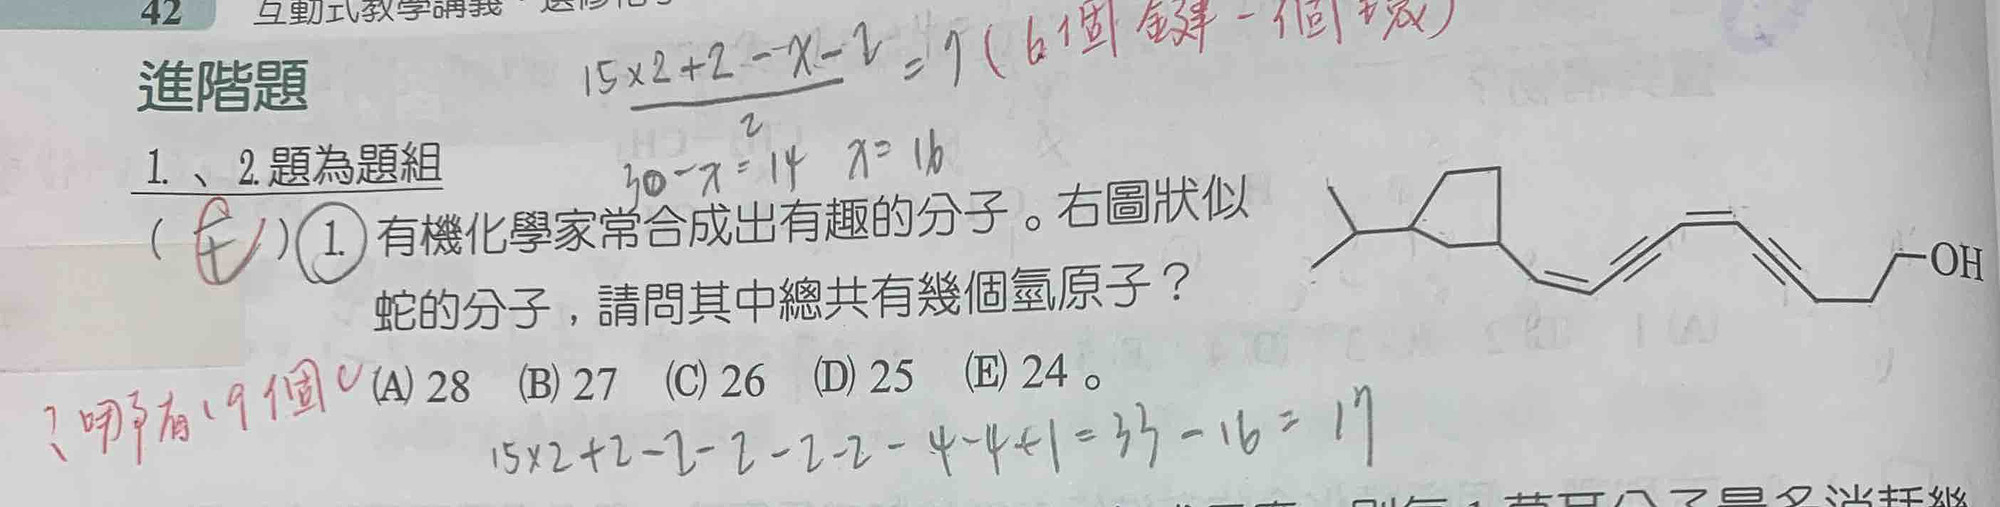 42 互動式教學講義
15×2+2-x-2 / 2 = 7 (6個鍵-1個環)
進階題
30-x=14 x=16
1.、2.題為題組
( E )1. 有機化學家常合成出有趣的分子。右圖狀似
蛇的分子,請問其中總共有幾個氫原子?
OH
(A) 28 (B) 27 (C) 26 (D) 25 (E) 24。
19個
15×2+2-2-2-2-2-4-4+1=33-16=17